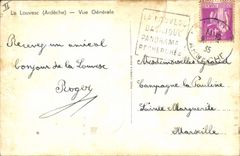 La Louvesc (Ardèche) – Vue Générale
LA LOUVESC
BASILIQUE
PANORAMA
RECHERCHÉS
35
ARDECHE
Recevez un amical
bonjour de la Louvesc
Roger
Mesdemoiselles
Campagne la Pauline
Sainte Marguerite
Marseille